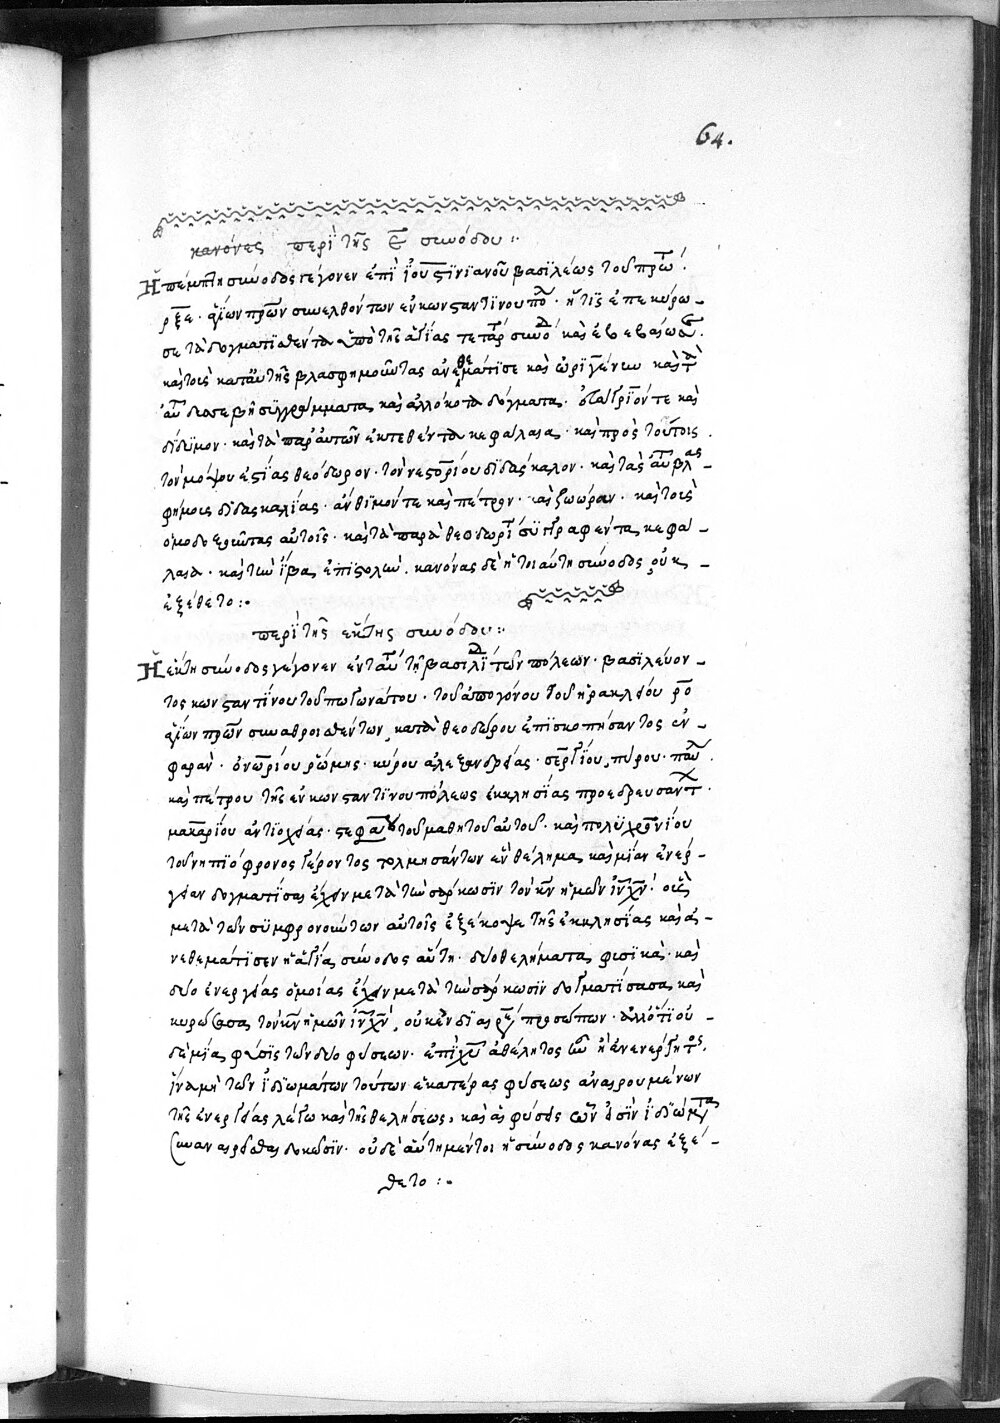 64.
κανόνες περὶ τῆς ε̅ συνόδου :·
Ἡ πέμπτη σύνοδος γέγονεν ἐπὶ ἰουστινιανοῦ βασιλέως τοῦ πρώ.
ρξε · ἁγίων πρων συνελθόντων ἐν κωνσταντινουπο · ἥτις ἐπεκύρω–
σε τὰ δογματισθέντα ὑπὸ τῆς ἁγίας τετάρ συνοδ καὶ ἐβεβαίωσ.
καὶ τοὺς κατ' αὐτῆς βλασφημοῦντας ἀνεθεμάτισε καὶ ὠριγένην καὶ τὰ
αὐ δυσσεβῆ συγγράμματα καὶ ἀλλόκοτα δόγματα · εὐάγριόν τε καὶ
δίδυμον · καὶ τὰ παρ' αὐτῶν ἐκτεθέντα κεφάλαια · καὶ πρὸς τούτοις
τὸν μόψου ἑστίας θεόδωρον · τὸν νεστορίου διδάσκαλον · καὶ τὰς αὐ βλασ–
φήμοις διδασκαλίας · ἄνθιμόν τε καὶ πέτρον · καὶ ζωόραν · καὶ τοὺς
ὁμοδοξοῦντας αὐτοῖς · καὶ τὰ παρὰ θεοδωρί συγγραφέντα κεφά–
λαια · καὶ τὴν ἴβα ἐπιστολὴν . κανόνας δὲ ἡ τοιαύτη σύνοδος οὐκ –
ἐξέθετο :·
περὶ τῆς ἕκτης συνόδου :·
Ἡ ἕκτη σύνοδος γέγονεν ἐν ταύ τῇ βασιλίδι τῶν πόλεων · βασιλεύον–
τος κωνσταντίνου τοῦ πωγωνάτου · τοῦ ἀπογόνου τοῦ ἡρακλείου ρο
ἁγίων πρων συναθροισθέντων κατὰ θεοδώρου ἐπισκοπήσαντος ἐν –
φαράν · ὀνωρίου ῥώμης · κύρου ἀλεξανδρείας · σεργίου, πύρου · παύ .
καὶ πέτρου τῆς ἐν κωνσταντινουπόλεως ἐκκλησίας προεδρευσάντ ·
μακαρίου ἀντιοχείας · στεφάνου τοῦ μαθητοῦ αὐτοῦ · καὶ πολυχρονίου
τοῦ νηπιόφρονος γέροντος τολμησάντων ἓν θέλημα καὶ μίαν ἐνέρ–
γειαν δογματίσαι ἔχειν μετὰ τὴν σάρκωσιν τὸν κν ἡμῶν ιν χν · οὓς
μετὰ τῶν συμφρονούντων αὐτοῖς ἐξέκοψε τῆς ἐκκλησίας καὶ ἀ–
νεθεμάτισεν ἡ ἁγία σύνοδος αὕτη · δύο θελήματα φυσικὰ · καὶ
δύο ἐνεργείας ὁμοίας ἔχειν μετὰ τὴν σάρκωσιν δογματίσασα καὶ
κυρώσασα τὸν κν ἡμῶν ιν χν , οὐκ ἐν διαιρέ προσώπων · ἀλλ' ὅτι οὐ–
δὲ μία φύσις τῶν δύο φύσεων · ἐπὶ χυ ἀθέλητος ἦν ἢ ἀνενέργητος .
ἵνα μὴ τῶν ἰδιωμάτων τούτων ἑκατέρας φύσεως ἀναιρουμένων
τῆς ἐνεργείας λέγω καὶ τῆς θελήσεως , καὶ αἱ φύσεις ὧν εἰσὶν ἰδιώματα
συναναιρεῖσθαι δοκῶσιν · οὐδ' αὕτη μέντοι ἡ σύνοδος κανόνας ἐξέ–
θετο :·